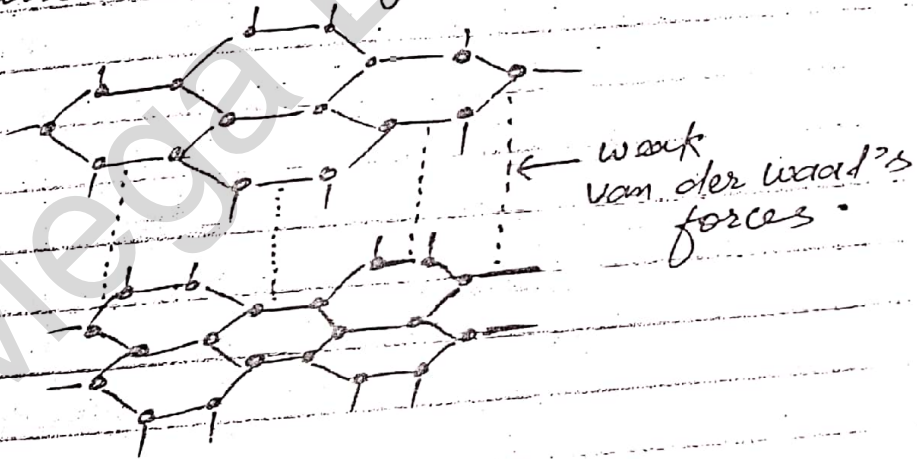 Mega
weak
van der waal's
forces.